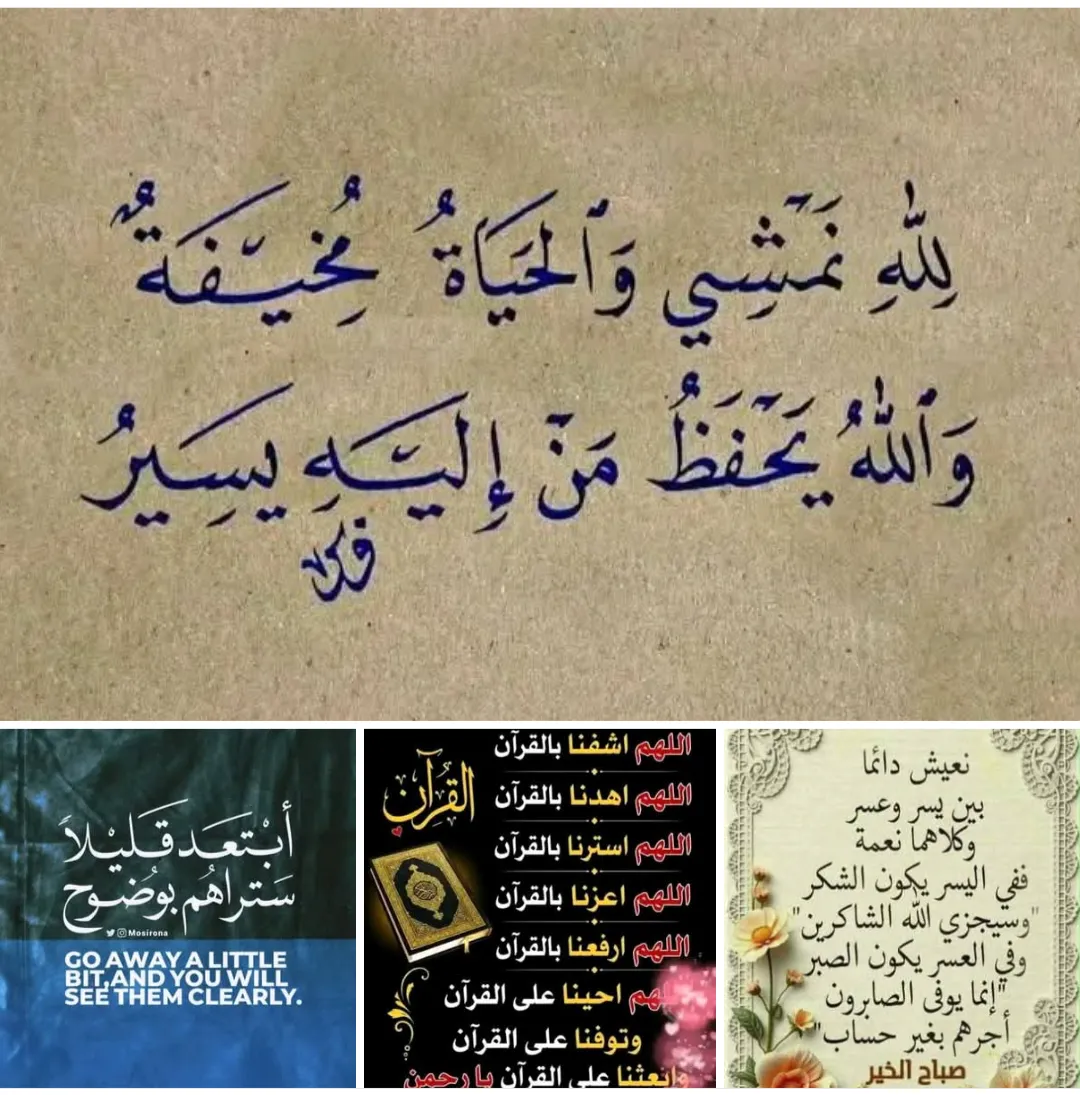 لِلّٰهِ نَمْشِي وَٱلحَيَاةُ مُخِيْفَةٌ
وَٱللّٰهُ يَحْفَظُ مَنْ إِلَيْهِ يسِيرُ
أبْتَعَد قَليْلاً
سَتراهُم بوُضُوح
Mosirona
GO AWAY A LITTLE
BIT, AND YOU WILL
SEE THEM CLEARLY.
القرآن
اللهم اشفنا بالقرآن
اللهم اهدنا بالقرآن
اللهم استرنا بالقرآن
اللهم اعزنا بالقرآن
اللهم ارفعنا بالقرآن
احينا على القرآن
وتوفنا على القرآن
وابعثنا على القرآن يا رحمن
نعيش دائما
بين يسر وعسر
وكلاهما نعمة
ففي اليسر يكون الشكر
"وسيجزي الله الشاكرين"
وفي العسر يكون الصبر
"إنما يوفى الصابرون
أجرهم بغير حساب"
صباح الخير